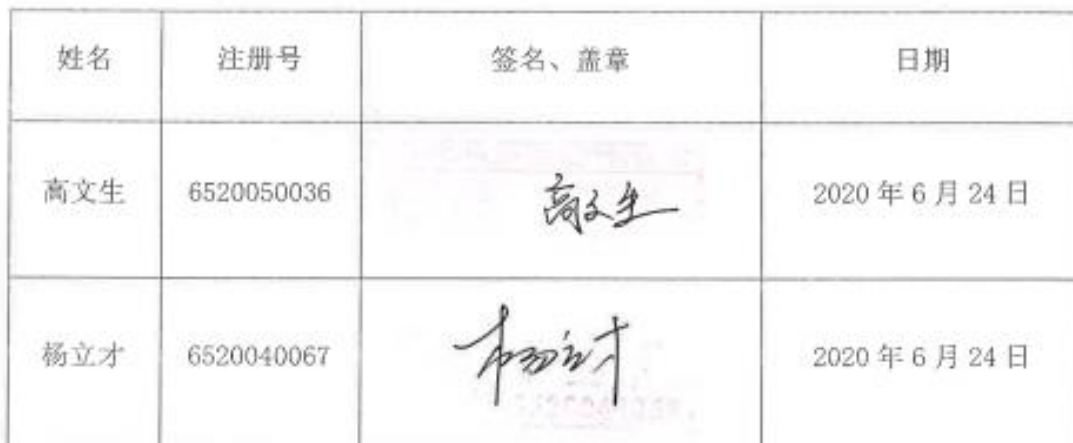 姓名 注册号 签名、盖章 日期
高文生 6520050036 高文生 2020 年 6 月 24 日
杨立才 6520040067 杨立才 2020 年 6 月 24 日